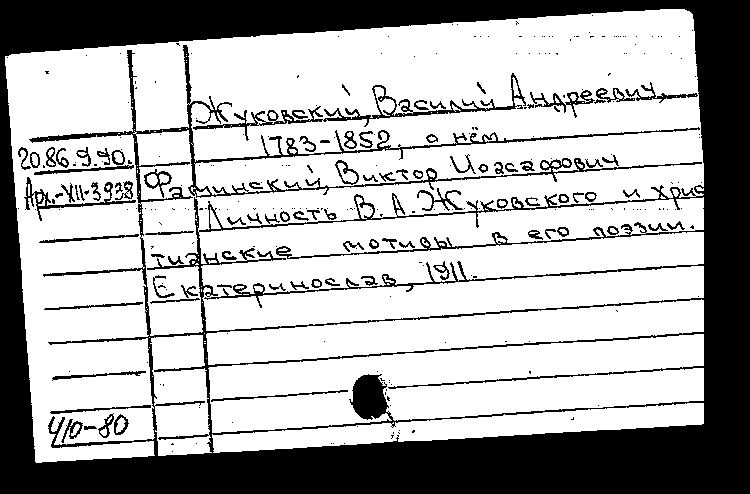 Жуковский, Василий Андреевич,
1783-1852, о нём.
20.86.9.90.
Фаминский, Виктор Иоасафович
Арх.-XII-3938
Личность В. А. Жуковского и хрис
тианские мотивы в его поэзии.
Екатеринослав, 1911.
Ч10-80